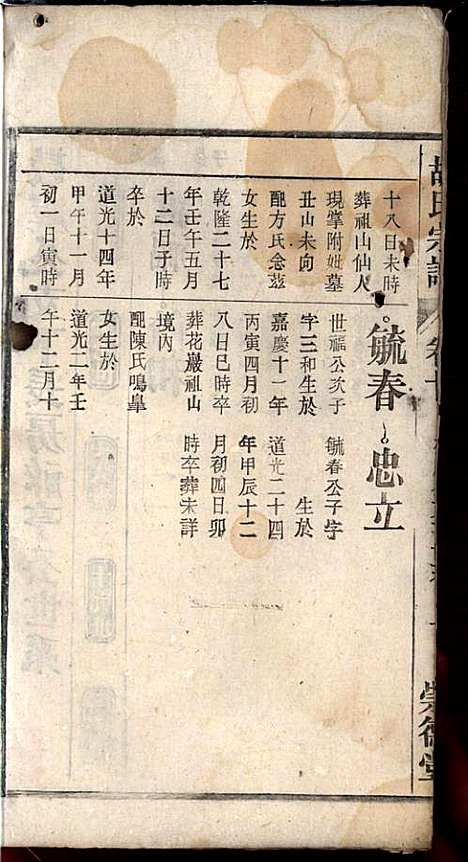 胡氏宗譜
卷十
崇德堂
十八日未時
葬祖山仙人
現掌附妣墓
丑山未向
配方氏念茲
女生於
乾隆二十七
年壬午五月
十二日子時
卒於
道光十四年
甲午十一月
初一日寅時
毓春
世福公次子
字三和生於
嘉慶十一年
丙寅四月初
八日巳時卒
葬花嚴祖山
境內
配陳氏鳴皐
女生於
道光二年壬
午十二月十
忠立
毓春公子字
生於
道光二十四
年甲辰十二
月初四日卯
時卒葬未詳